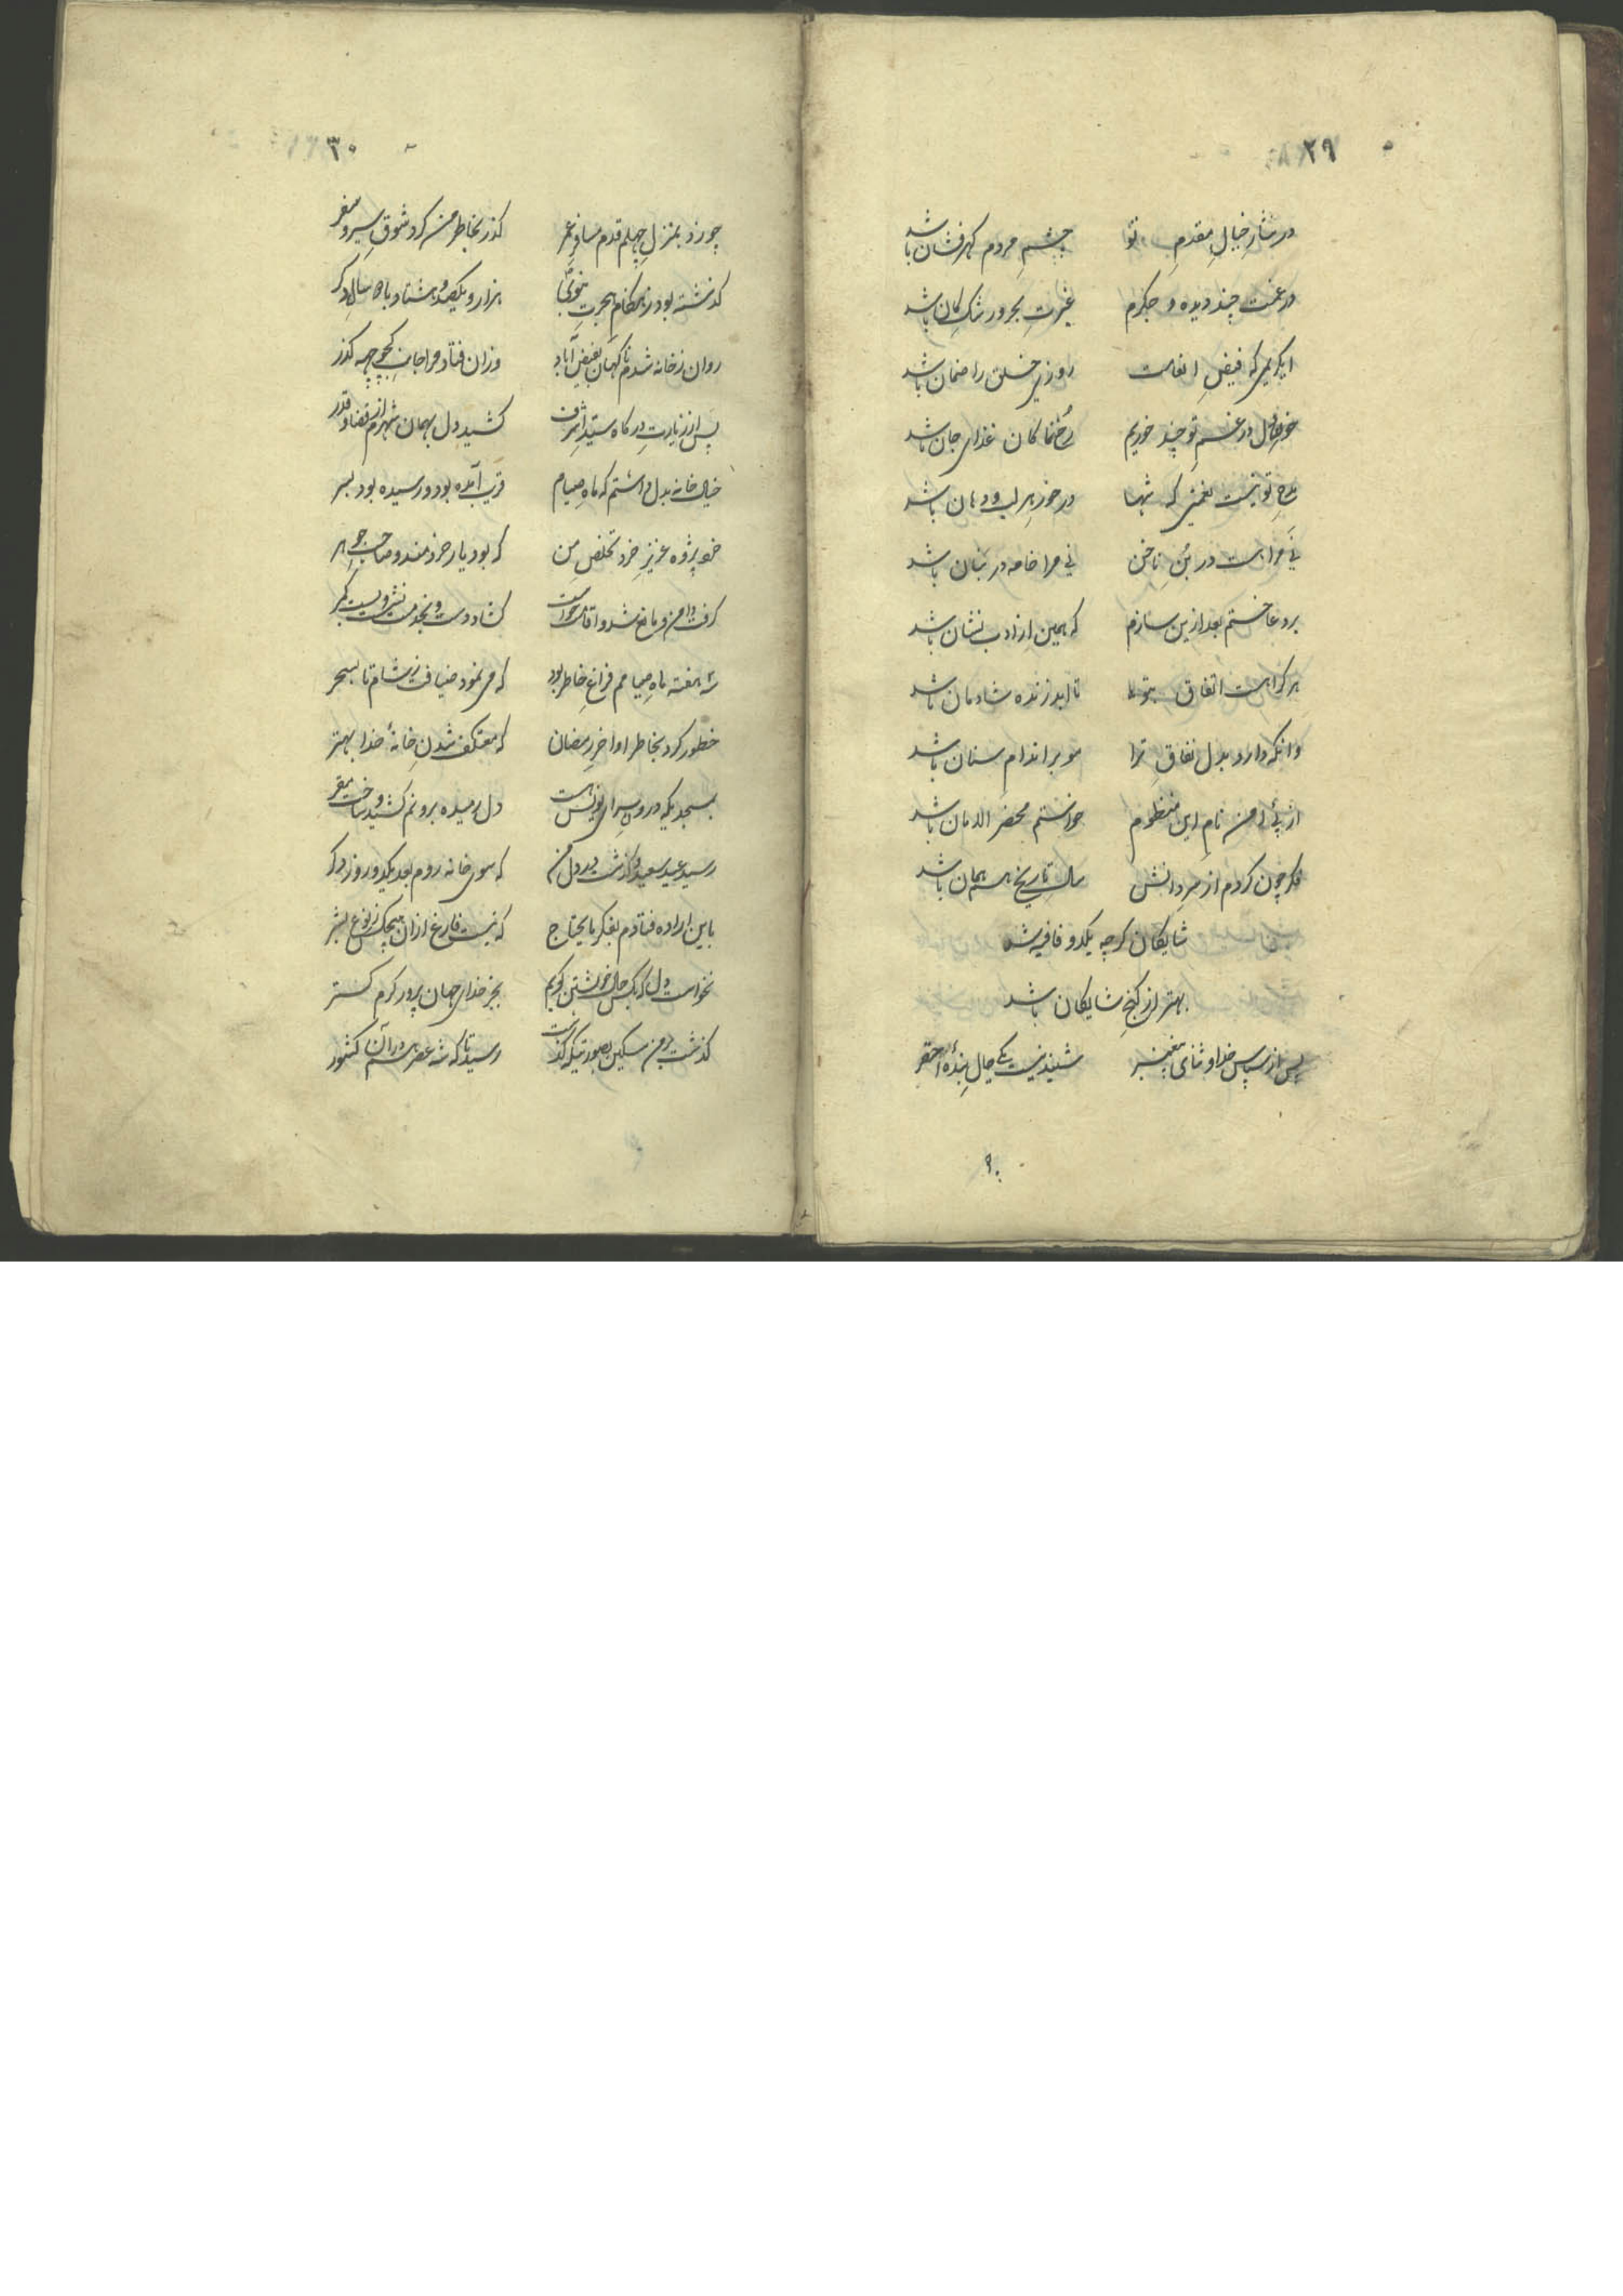 ۲۹
در نثار خیالِ مقدمِ تو چشمِ مردم گهرفشان باشد
در غمت چند دیده و جگرم غیرتِ بحر و رشکِ کان باشد
ای کریمی که فیضِ انعامت روزیِ خلق را ضمان باشد
خونِ دل در غمِ تو چند خوریم رُخ نما کان غذای جان باشد
مدحِ تو نیست نعمتی که شها در خورِ هر لب و دهان باشد
نَی مرا هست در بُنِ ناخن نی مرا خامه در بنان باشد
بر دعا ختم بعد ازین سازم که همین از ادب نشان باشد
هر کرا هست اتفاق بتو تا ابد زنده شادمان باشد
وانکه دارد بدل نفاقِ ترا مو بر اندام سنان باشد
از پئ امن نامِ این منظوم خواستم محضر الامان باشد
فکر چون کردم از سرِ دانش سالِ تاریخ هم همان باشد
شایگان گرچه یکدو قافیه شد
بهتر از گنجِ شایگان باشد
پس از سپاس خدا و ثنای پیغمبر شنیدنیست یکی حالِ بندهٔ احقر
۹۰
۳۰
چو زد بمنزلِ چهلم قدم مسافرِ عمر گذر بخاطر من کرد شوقِ سیر و سفر
گذشته بود ز هنگامِ هجرتِ نبوی هزار و یکصد و هشتاد با سالِ دگر
روان ز خانه شدم ناگهان بفیض آباد وزان فتاد مرا جانبِ کچوچهه گذر
پس از زیارتِ درگاه سید اشرف کشید دل بهمان شهرم از قضا و قدر
خیالِ خانه بدل داشتم که ماهِ صیام قریب آمده بود و رسیده بود بسر
خرد پژوه عزیزِ خرد تخلصِ من که بود یار خردمند و صاحبِ جوهر
گرفت دامن و مانع شد و اقامت خواست گشاد دست و بخدمت نشست و بست کمر
سه هفته ماهِ صیامم فراغِ خاطر بود که می نمود ضیافت ز شام تا بسحر
خطور کرد بخاطر اواخرِ رمضان که معتکف شدنِ خانهٔ خدا بهتر
بمسجدیکه درونِ سرای یونس هست دل رمیده برونم کشید و ساخت مقر
رسید عید سعید و گذشت در دل من که سوی خانه روم بعد یکدو روز دگر
باین اراده فتادم بفکر مایحتاج که نیست فارغ ازان هیچکس ز نوع بشر
نخواست دل که بکس حالِ خویشتن گویم بجز خدای جهان پرور کرم گستر
گذشت بر من مسکین بصورتیکه گذشت رسید تا که شه عصر هم در آن کشور